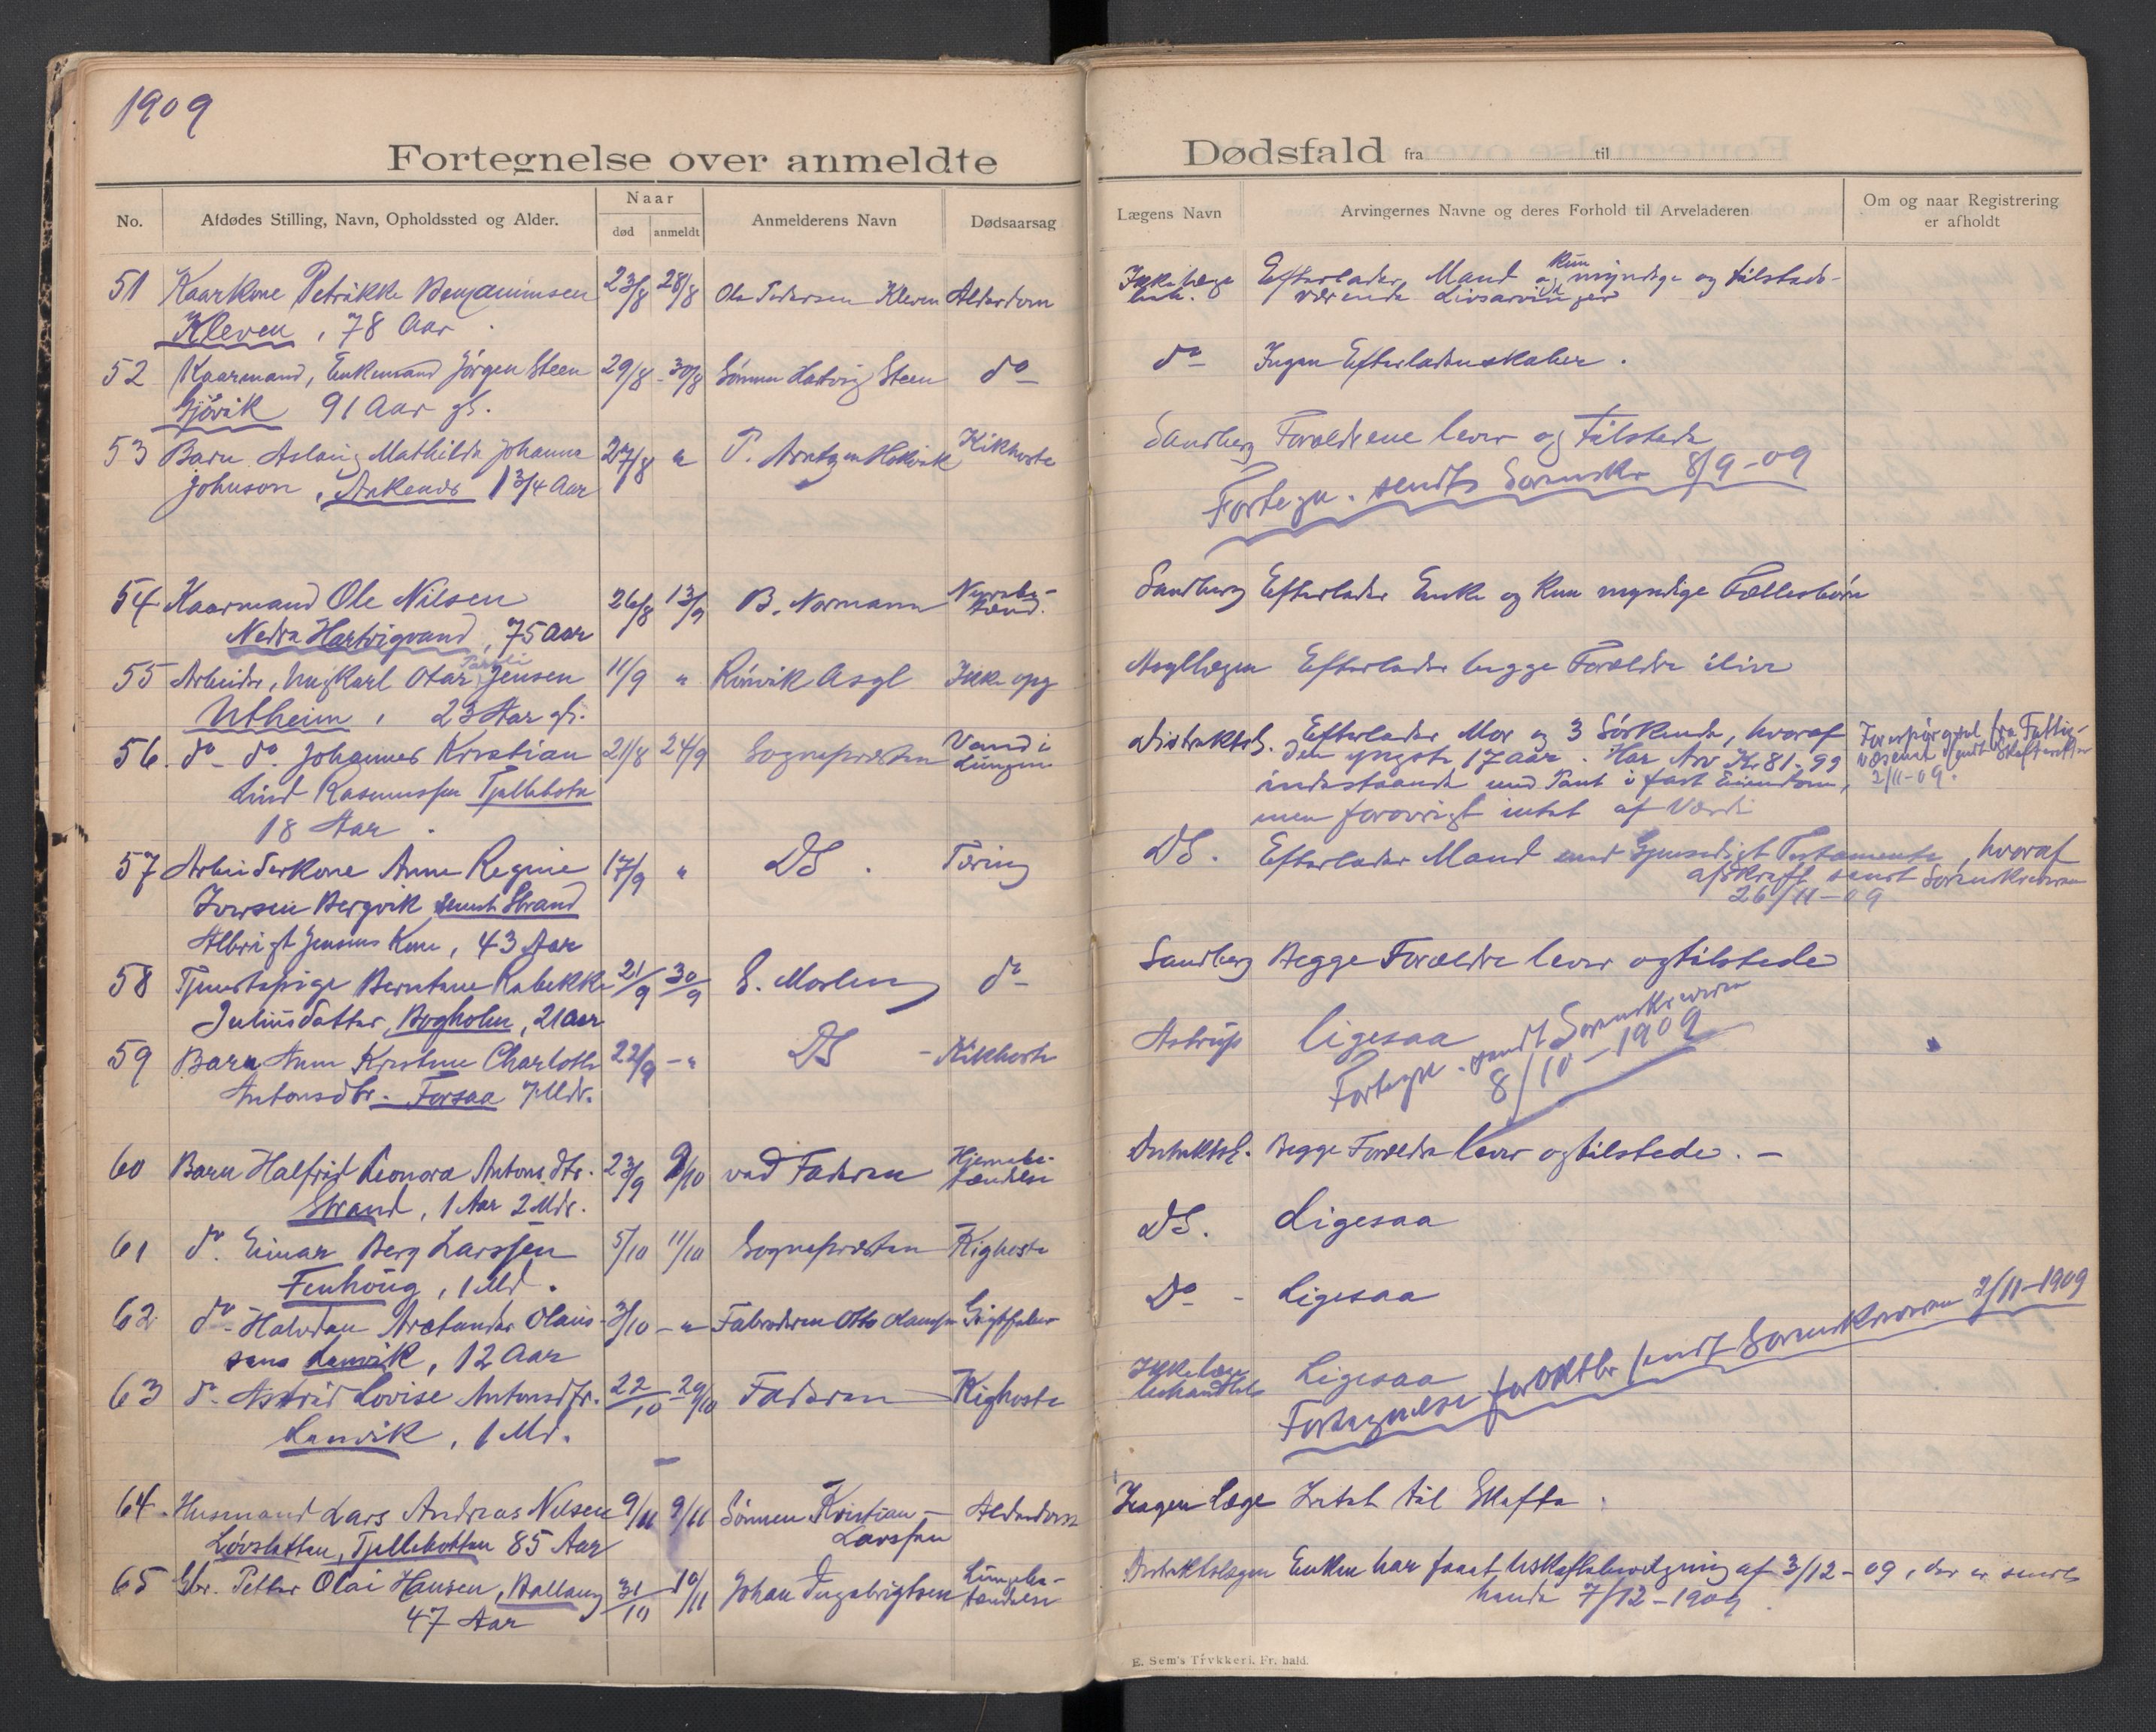 1909
Fortegnelse over anmeldte
Dødsfald fra til
No.
Afdødes Stilling, Navn, Opholdssted og Alder.
Naar
død
anmeldt
Anmelderens Navn
Dødsaarsag
Lægens Navn
Arvingernes Navne og deres Forhold til Arveladeren
Om og naar Registrering
er afholdt
51 Kaarkone Petrikke Benjaminsen 23/8 28/8 Ole Pedersen Kleven Alderdom Ikke læge Efterlader Mand og kun myndige og tilstede-
Kleven, 78 Aar værende Livsarvinger
52 Kaarmand, Enkemand Jørgen Steen 29/8 30/8 Sønnen Hartvig Steen do Ingen Efterladenskaber.
91 Aar gl. do
53 Barn Aslaug Mathilde Johanna 27/8 " P. Arntzen Kikhoste Sandberg Forældrene lever og tilstede
Johnson, Ankenes 1 3/4 Aar Fortegn. sendt Sorenskr 8/9-09
54 Kaarmand Ole Nilsen 26/8 13/9 B. Normann Nyrebe-
Nedre Hartvigvand, 75 Aar tænd. Sandberg Efterlader Enke og kun myndige Fællesbørn
55 Arbeider, Ung Karl Otar Jensen 11/9 " Rønvik Asyl Ikke opg Asyllægen Efterlader begge Forældre ilive
Utheim, 23 Aar gl.
56. do do Johannes Kristian 21/8 24/9 Sognepresten Vand i Distriktsl. Efterlader Mor og 3 Søskende, hvoraf Forespørgsel fra Fattig-
Lind Rasmussen Tjellebotn Lungene den yngste 17 aar. Har Arv Kr 81-99 væsenet sendt Skifteretten
18 Aar. indestaaende med Pant i fast Eiendom, 2/11-09.
men forøvrigt intet af Værdi
57 Arbeiderkone Anne Regine 17/9 " DS. Tæring DS. Efterlader Mand med Gjensidigt Testamente, hvoraf
Iversen Bergvik Strand afskrift sendt Sorenskriveren
Albrigt Jensens Kone, 43 Aar 26/11-09
58 Tjenestepige Berntine Rebekke 21/9 30/9 E. Moslien do Sandberg Begge Forældre lever og tilstede
Juliusdatter, Bogholm, 21 Aar
59 Barn Anne Kristine Charlotte 22/9 " DS - Kikhoste Astrup ligesaa
Antonsdtr. Forsaa 7 Mdr. Fortegn. sendt Sorenskriveren
8/10-1909
60 Barn Halfrid Leonora Antonsdtr. 23/9 9/10 ved Faderen Hjernebe- Distriktsl. Begge Forældre lever og tilstede. -
Strand, 1 Aar 2 Mdr. tændelse
61 do. Einar Berg Larssen 5/10 11/10 Sognepresten Kighoste DS. Ligesaa
Fenhoug, 1 Md.
62 do Halvdan Arctander Olaus- 3/10 " Faderen Otto Gigtfeber Do - Ligesaa
sens Lenvik, 12 Aar
63 do Astrid Lovise Antonsdtr. 22/10 29/10 Faderen Kighoste Ikke læge Ligesaa
Lenvik, 1 Md. behandlet Fortegnelse for Oktbr sendt Sorenskriveren 2/11-1909
64. Husmand Lars Andreas Nilsen 9/11 9/11 Sønnen Kristian Alderdom Ingen læge Intet til Skifte.
Løvsletten, Tjellebotten 85 Aar Larssen
65 Gbr. Petter Olai Hansen, Ballang 31/10 10/11 Johan Ingebrigtsen Lungebe- Distriktslægen Enken har faaet uskiftebevilgning af 3/12-09, der er sendt
47 Aar tændelse hende 7/12-1909
E. Sem's Trykkeri. Fr. hald.